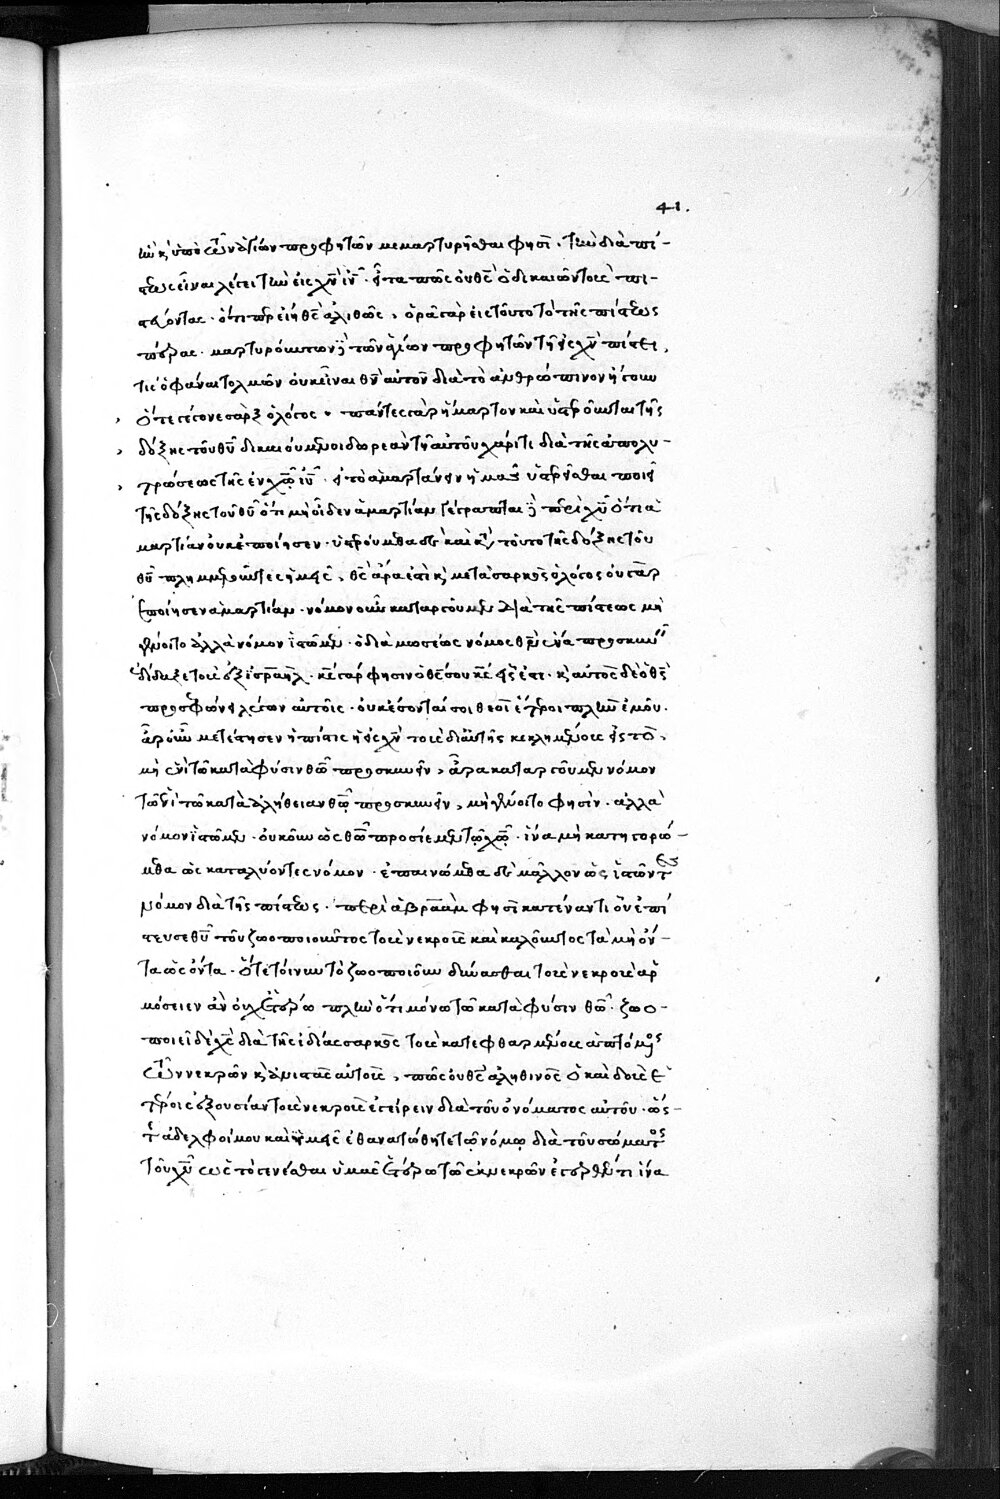 41.
ἣν κ͵ ὑπὸ τῶν ἁγίων προφητῶν μεμαρτυρῆσθαι φησὶ, τὴν διὰ πί-
στεως εἶναι λέγει τὴν εἰς χ̅ν̅ ἰ̅ν̅. εἶτα πῶς οὐ θ̅ς̅ ὁ δικαιῶν τοὺς πι-
στεύοντας. ὅτι περ εἴη θ̅ς̅ ἀληθῶς, ὅρα γὰρ εἰς τοῦτο τὸ τῆς πίστεως
πέρας. μαρτυρούντων τῶν ἁγίων προφητῶν τῇ εἰς χ̅ν̅ πίστει,
τίς ὁ φάναι τολμῶν οὐκ εἶναι θ̅ν̅ αὐτὸν διὰ τὸ ἀνθρώπινον ἤγουν
ὅτε γέγονε σὰρξ ὁ λόγος. πάντες γὰρ ἥμαρτον καὶ ὑστεροῦνται τῆς
δόξης τοῦ θ̅υ̅ δικαιούμενοι δωρεὰν τῇ αὐτοῦ χάριτι διὰ τῆς ἀπολυ-
τρώσεως τῆς ἐν χ̅ω̅ ἰ̅υ̅. εἰ τὸ ἁμαρτάνειν ἡμᾶς ὑστερεῖσθαι ποιεῖ
τῆς δόξης τοῦ θ̅υ̅ ὅτι μὴ οἶδεν ἁμαρτίαν γέγραπται περὶ χ̅υ̅ ὅτι ἁ
μαρτίαν οὐκ ἐποίησεν. ὑστερούμεθα δὲ καὶ κατὰ τοῦτο τῆς δόξης τοῦ
θ̅υ̅ πλημμελοῦντες ἡμεῖς, θ̅ς̅ ἄρα ἐστὶ κ͵ μετὰ σαρκὸς ὁ λόγος οὐ γὰρ
ἐποίησεν ἁμαρτίαν. νόμον οὖν καταργοῦμεν διὰ τῆς πίστεως μὴ
γένοιτο ἀλλὰ νόμον ἱστῶμεν. ὁ διὰ μωσέως νόμος θ̅ν̅ ἕνα προσκυνεῖν
ἐδίδαξε τοὺς ἐξ ἰσραήλ. κ̅ς̅ γάρ φησιν ὁ θ̅ς̅ σου κ̅ς̅ εἷς ἐστι. κ͵ αὐτὸς δὲ ὁ θ̅ς̅
προσφωνεῖ λέγων αὐτοῖς. οὐκ ἔσονταί σοι θεοὶ ἕτεροι πλὴν ἐμοῦ.
ἆρ οὖν μετέστησεν ἡ πίστις ἡ εἰς χ̅ν̅ τοὺς δι αὐτῆς κεκλημένους εἰς τὸ,
μὴ ἑνὶ τῶ κατὰ φύσιν θ̅ω̅ προσκυνεῖν, ἆρα καταργοῦμεν νόμον
τῶ ἑνὶ τῶ κατὰ ἀλήθειαν θ̅ω̅ προσκυνεῖν, μὴ γένοιτο φησίν. ἀλλὰ
νόμον ἱστῶμεν. οὐκοῦν ὡς θ̅ω̅ προσίεμεν τῶ χ̅ω̅. ἵνα μὴ κατηγορώ-
μεθα ὡς καταλύοντες νόμον. ἐπαινώμεθα δὲ μᾶλλον ὡς ἱστῶντες
νόμον διὰ τῆς πίστεως. περὶ ἀβραὰμ φησὶ κατέναντι οὗ ἐπί
στευσε θ̅υ̅ τοῦ ζωοποιοῦντος τοὺς νεκροὺς καὶ καλοῦντος τὰ μὴ ὄν-
τα ὡς ὄντα. ὅτε τοίνυν τὸ ζωοποιοῦν δύνασθαι τοὺς νεκροὺς ἁρ
μόσειεν ἂν οὐχ ἑτέρω πλὴν ὅτι μόνω τῶ κατὰ φύσιν θ̅ω̅. ζωο-
ποιεῖ δὲ χ̅ς̅ διὰ τῆς ἰδίας σαρκὸς τοὺς κατεφθαρμένους
τῶν νεκρῶν κ͵ ἀνιστὰς αὐτοὺς, πῶς οὐ θ̅ς̅ ἀληθινὸς ὁ καὶ δοὺς ἑ
τέροις ἐξουσίαν τοὺς νεκροὺς ἐγείρειν διὰ τοῦ ὀνόματος αὐτοῦ. ὥς-
τε ἀδελφοί μου καὶ ὑμεῖς ἐθανατώθητε τῶ νόμω διὰ τοῦ σώματος
τοῦ χ̅υ̅ εἰς τὸ γενέσθαι ὑμᾶς ἑτέρω τῶ ἐκ νεκρῶν ἐγερθέντι ἵνα